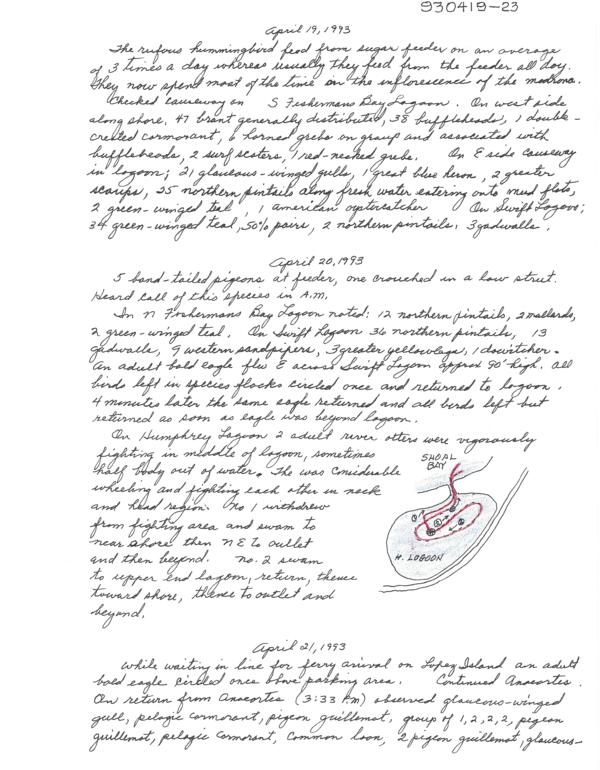 930419-23
April 19, 1993
The rufous hummingbird feed from sugar feeder on an average
of 3 times a day whereas usually they feed from the feeder all day.
They now spend most of the time in the inflorescence of the madrona.
Checked causeway on S Fishermans Bay Lagoon. On west side
along shore, 47 brant generally distributed, 38 buffleheads, 1 double-
crested cormorant, 6 horned grebs on group and associated with
buffleheads, 2 surf scoters, 1 red-necked grebe. On E side causeway
in lagoon; 21 glaucous-winged gulls, 1 great blue heron, 2 greater
scaups, 25 northern pintails along fresh water entering onto mud flats,
2 green-winged teal, 1 american oystercatcher On Swift Lagoon;
34 green-winged teal, 50% pairs, 2 northern pintails, 3 gadwalls.
April 20, 1993
5 band-tailed pigeons at feeder, one crouched in a low strut.
Heard call of this species in A.M.
In N Fishermans Bay Lagoon noted: 12 northern pintails, 2 mallards,
2 green-winged teal. On Swift Lagoon 36 northern pintails, 13
gadwalls, 9 western sandpipers, 3 greater yellowlegs, 1 dowitcher.
An adult bald eagle flew E across Swift Lagoon approx 90' high. All
birds left in species flocks circled once and returned to lagoon.
4 minutes later the same eagle returned and all birds left but
returned as soon as eagle was beyond lagoon.
On Humphrey Lagoon 2 adult river otters were vigorously
fighting in middle of lagoon, sometimes
half body out of water. The was considerable
wheeling and fighting each other in neck
and head region. No 1 withdrew
from fighting area and swam to
near shore then N E to outlet
and then beyond. No. 2 swam
to upper end lagoon, return, thence
toward shore, thence to outlet and
beyond.
SHOAL
BAY
H. LAGOON
April 21, 1993
While waiting in line for ferry arrival on Lopez Island an adult
bald eagle circled once above parking area. Continued Anacortes.
On return from Anacortes (3:33 P.M) observed glaucous-winged
gull, pelagic cormorant, pigeon guillemot, group of 1, 2, 2, 2, pigeon
guillemot, pelagic cormorant, Common loon, 2 pigeon guillemot, glaucous-